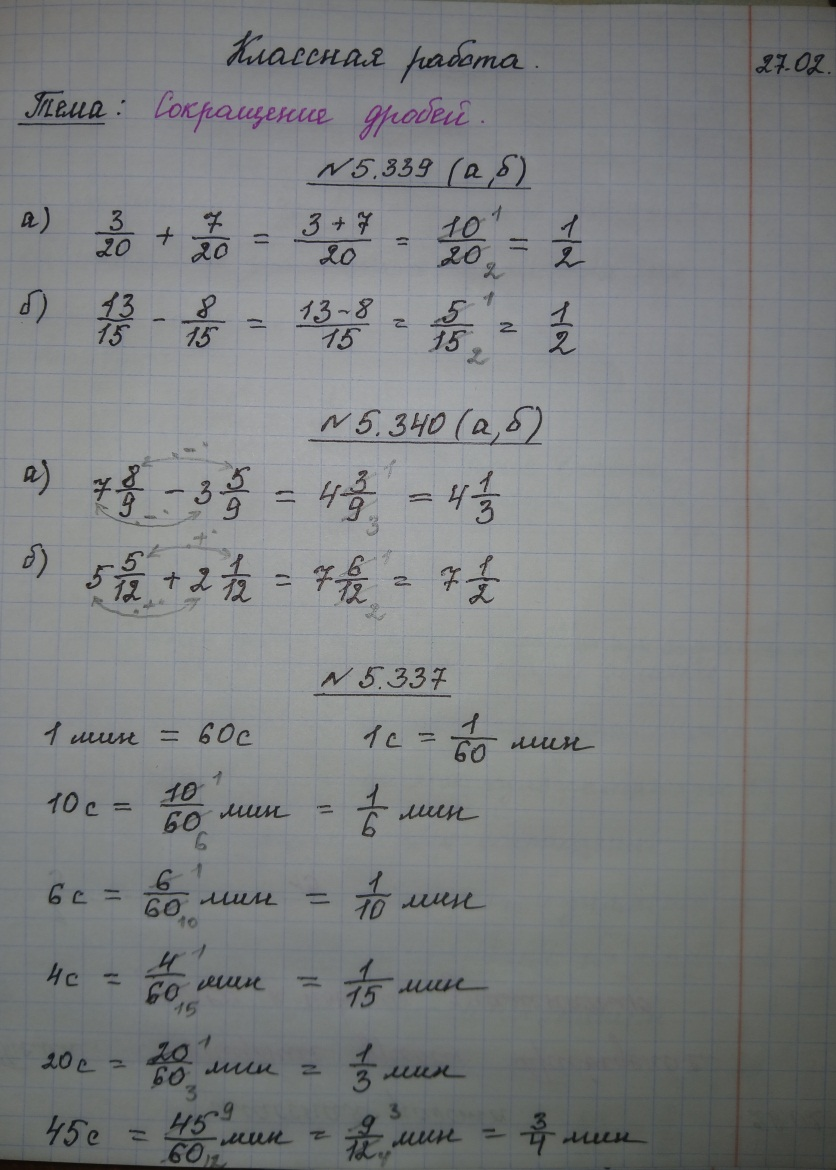 Классная работа. 27.02.
Тема: Сокращение дробей.
№5.339 (а,б)
а) 3/20 + 7/20 = (3+7)/20 = 10/20 (1, 2) = 1/2
б) 13/15 - 8/15 = (13-8)/15 = 5/15 (1, 2) = 1/2
№5.340 (а,б)
"-"
а) 7 8/9 - 3 5/9 = 4 3/9 (1, 3) = 4 1/3
"-"
"+"
б) 5 5/12 + 2 1/12 = 7 6/12 (1, 2) = 7 1/2
"+"
№5.337
1 мин = 60с 1с = 1/60 мин
10с = 10/60 (1, 6) мин = 1/6 мин
6с = 6/60 (1, 10) мин = 1/10 мин
4с = 4/60 (1, 15) мин = 1/15 мин
20с = 20/60 (1, 3) мин = 1/3 мин
45с = 45/60 (9, 12) мин = 9/12 (3, 4) мин = 3/4 мин